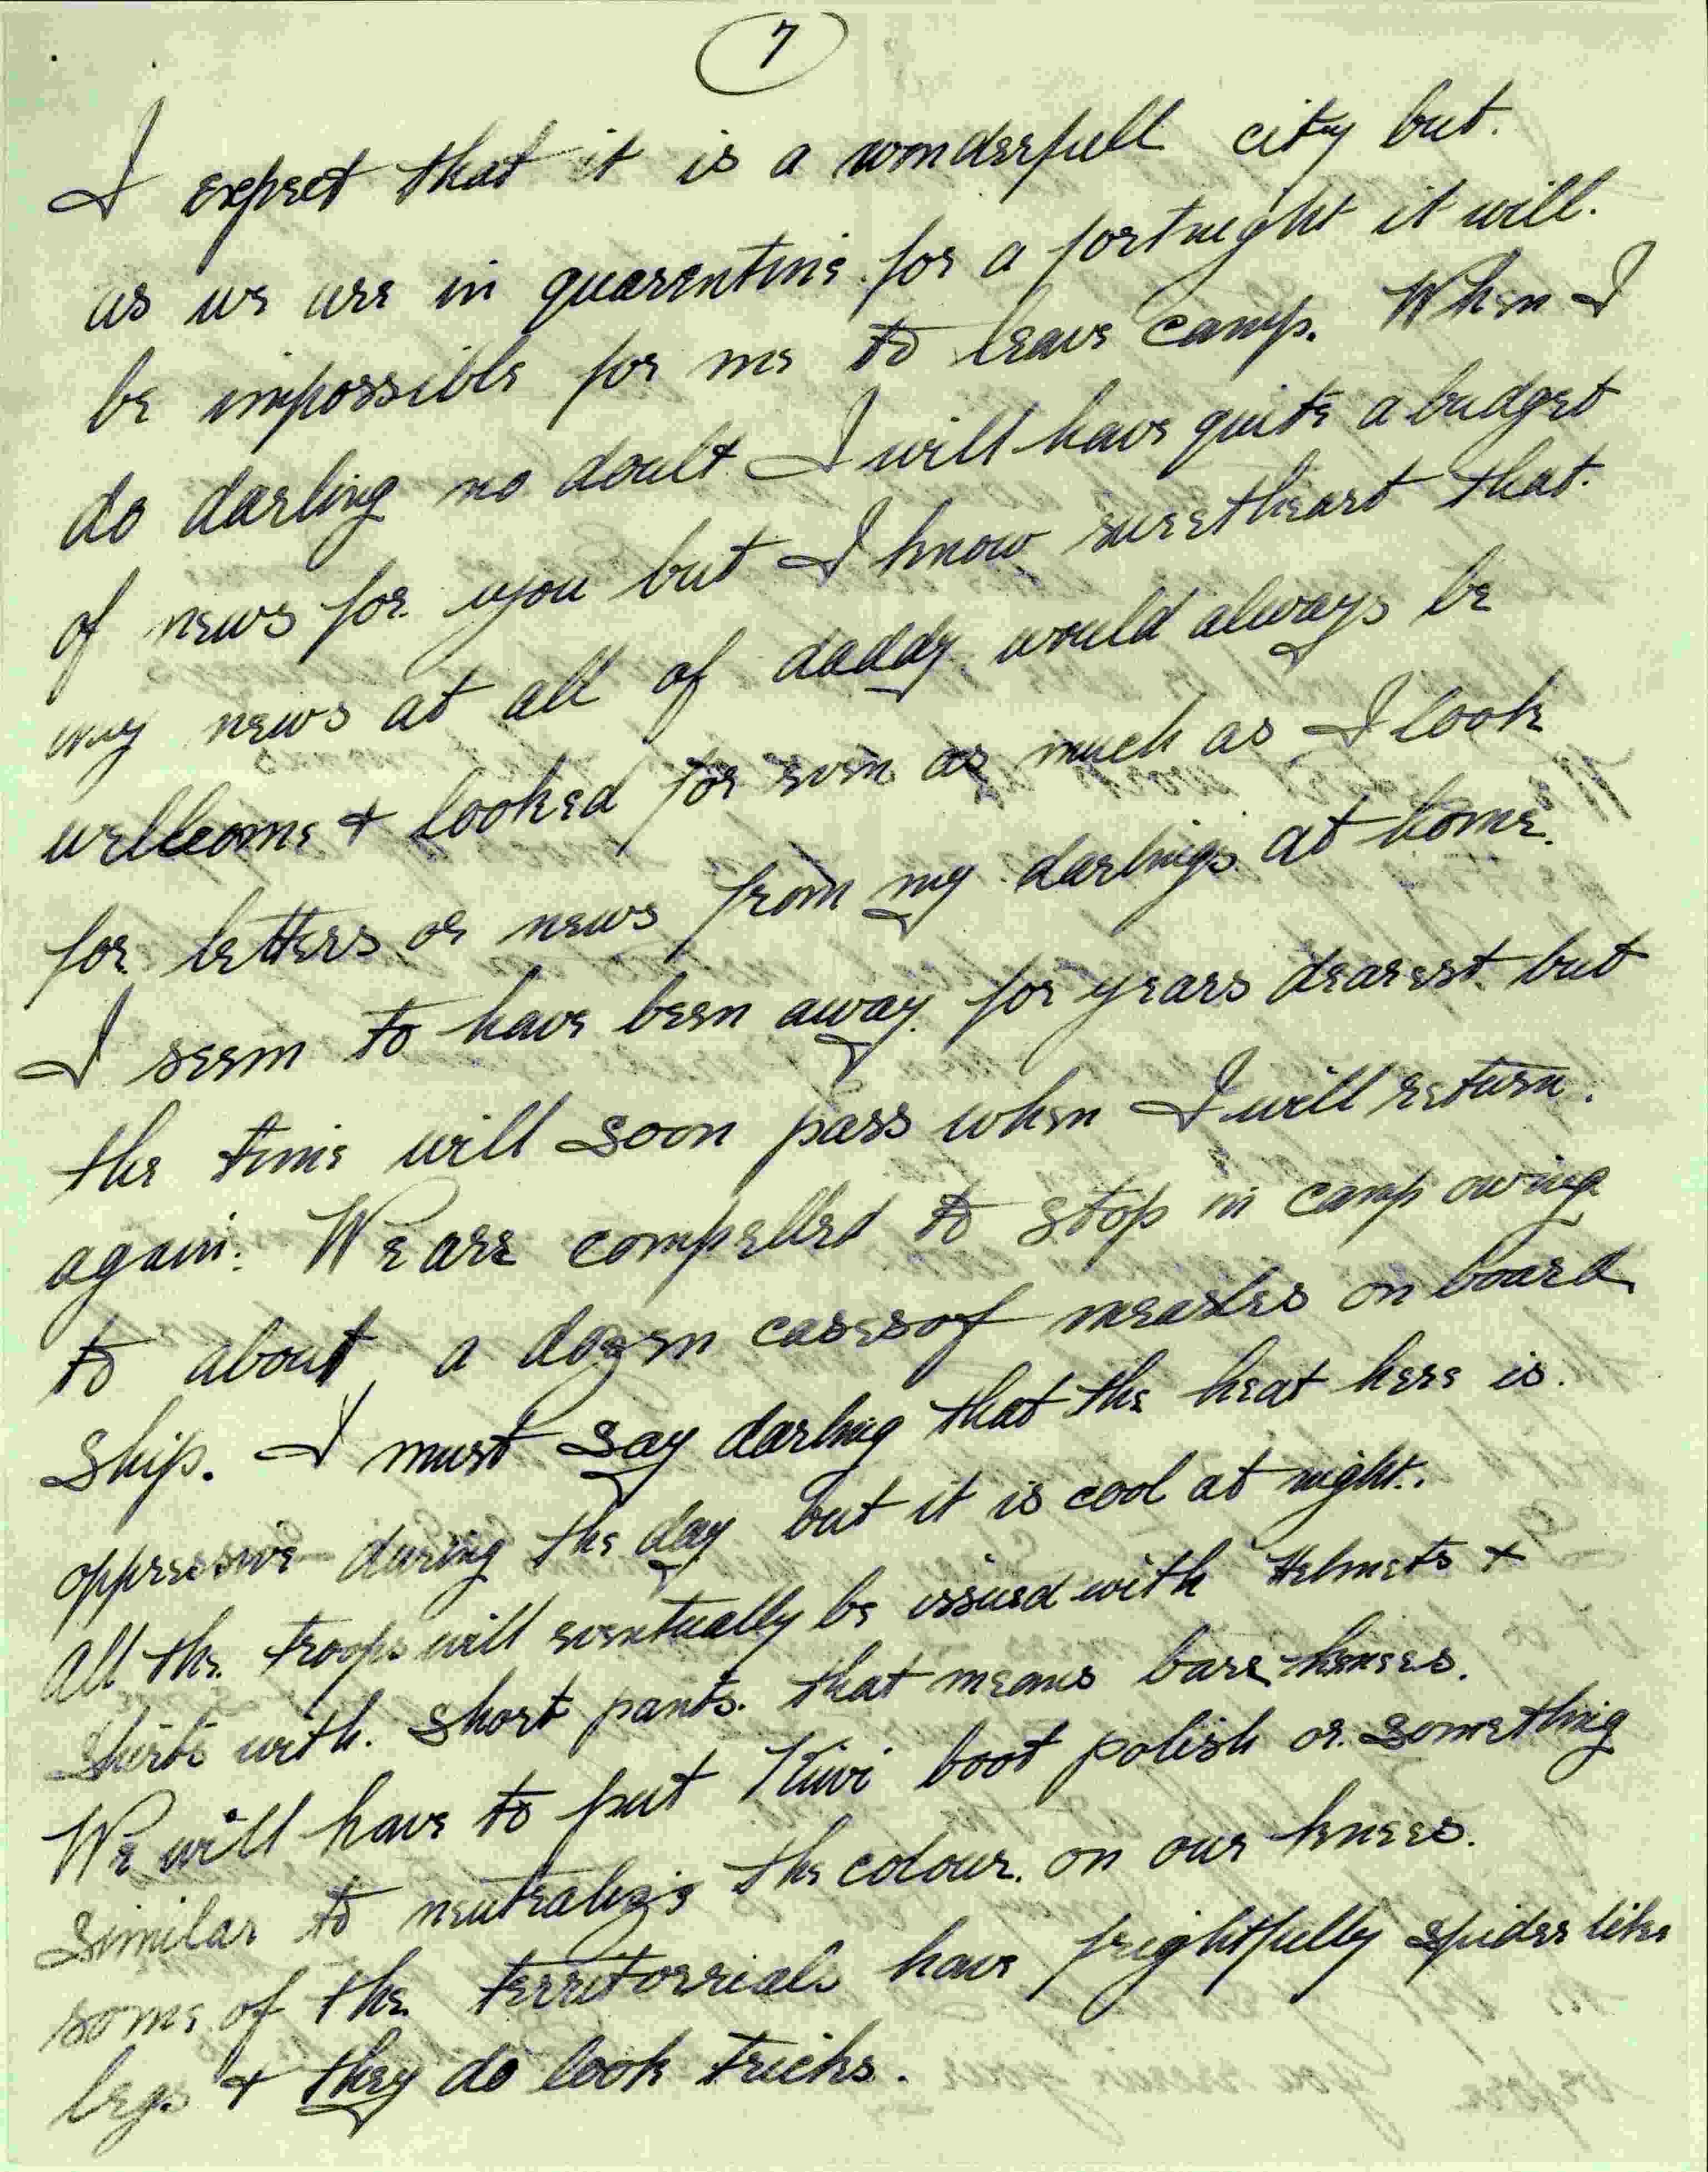 7
I expect that it is a wonderfull city but.
as we are in quarentine for a fortnight it will.
be impossible for me to leave camp. When I
do darling no doubt I will have quite a budget
of news for you but I know sweetheart that.
my news at all of daddy would always be
wellcome & looked for even as much as I look
for letters or news from my darlings at home.
I seem to have been away for years dearest but
the time will soon pass when I will return.
again. We are compelled to stop in camp owing
to about a dozen cases of measles on board
ship. I must say darling that the heat here is.
oppressive during the day but it is cool at night.
All the troops will eventually be issued with Helmets &
shirts with short pants. that means bare knees.
We will have to put Kiwi boot polish or something
similar to neutralize the colour on our knees.
some of the territorrials have frightfully spider like
legs & they do look tricks.